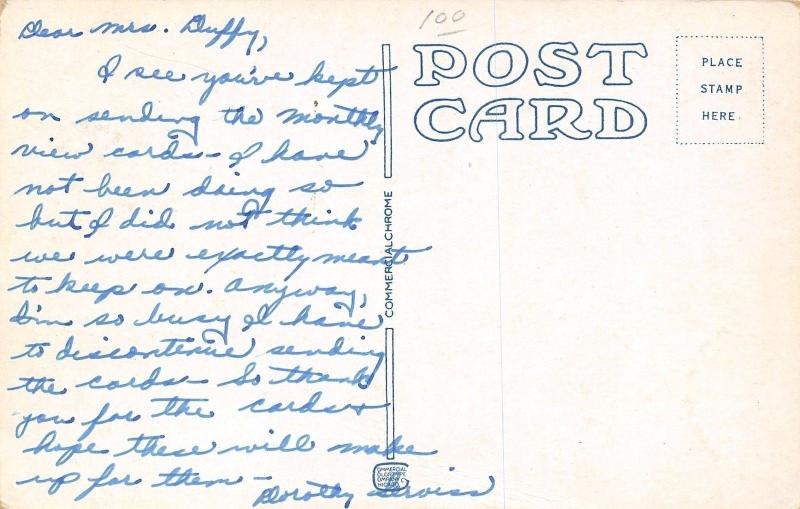 Dear Mrs. Duffy,
I see you've kept
on sending the monthly
view cards - I have
not been doing so
but I did not think
we were exactly meant
to keep on. Anyway,
I'm so busy I have
to discontinue sending
the cards - So thank
you for the cards +
hope these will make
up for them -
Dorothy Serviss
100
POST
CARD
PLACE
STAMP
HERE
COMMERCIALCHROME